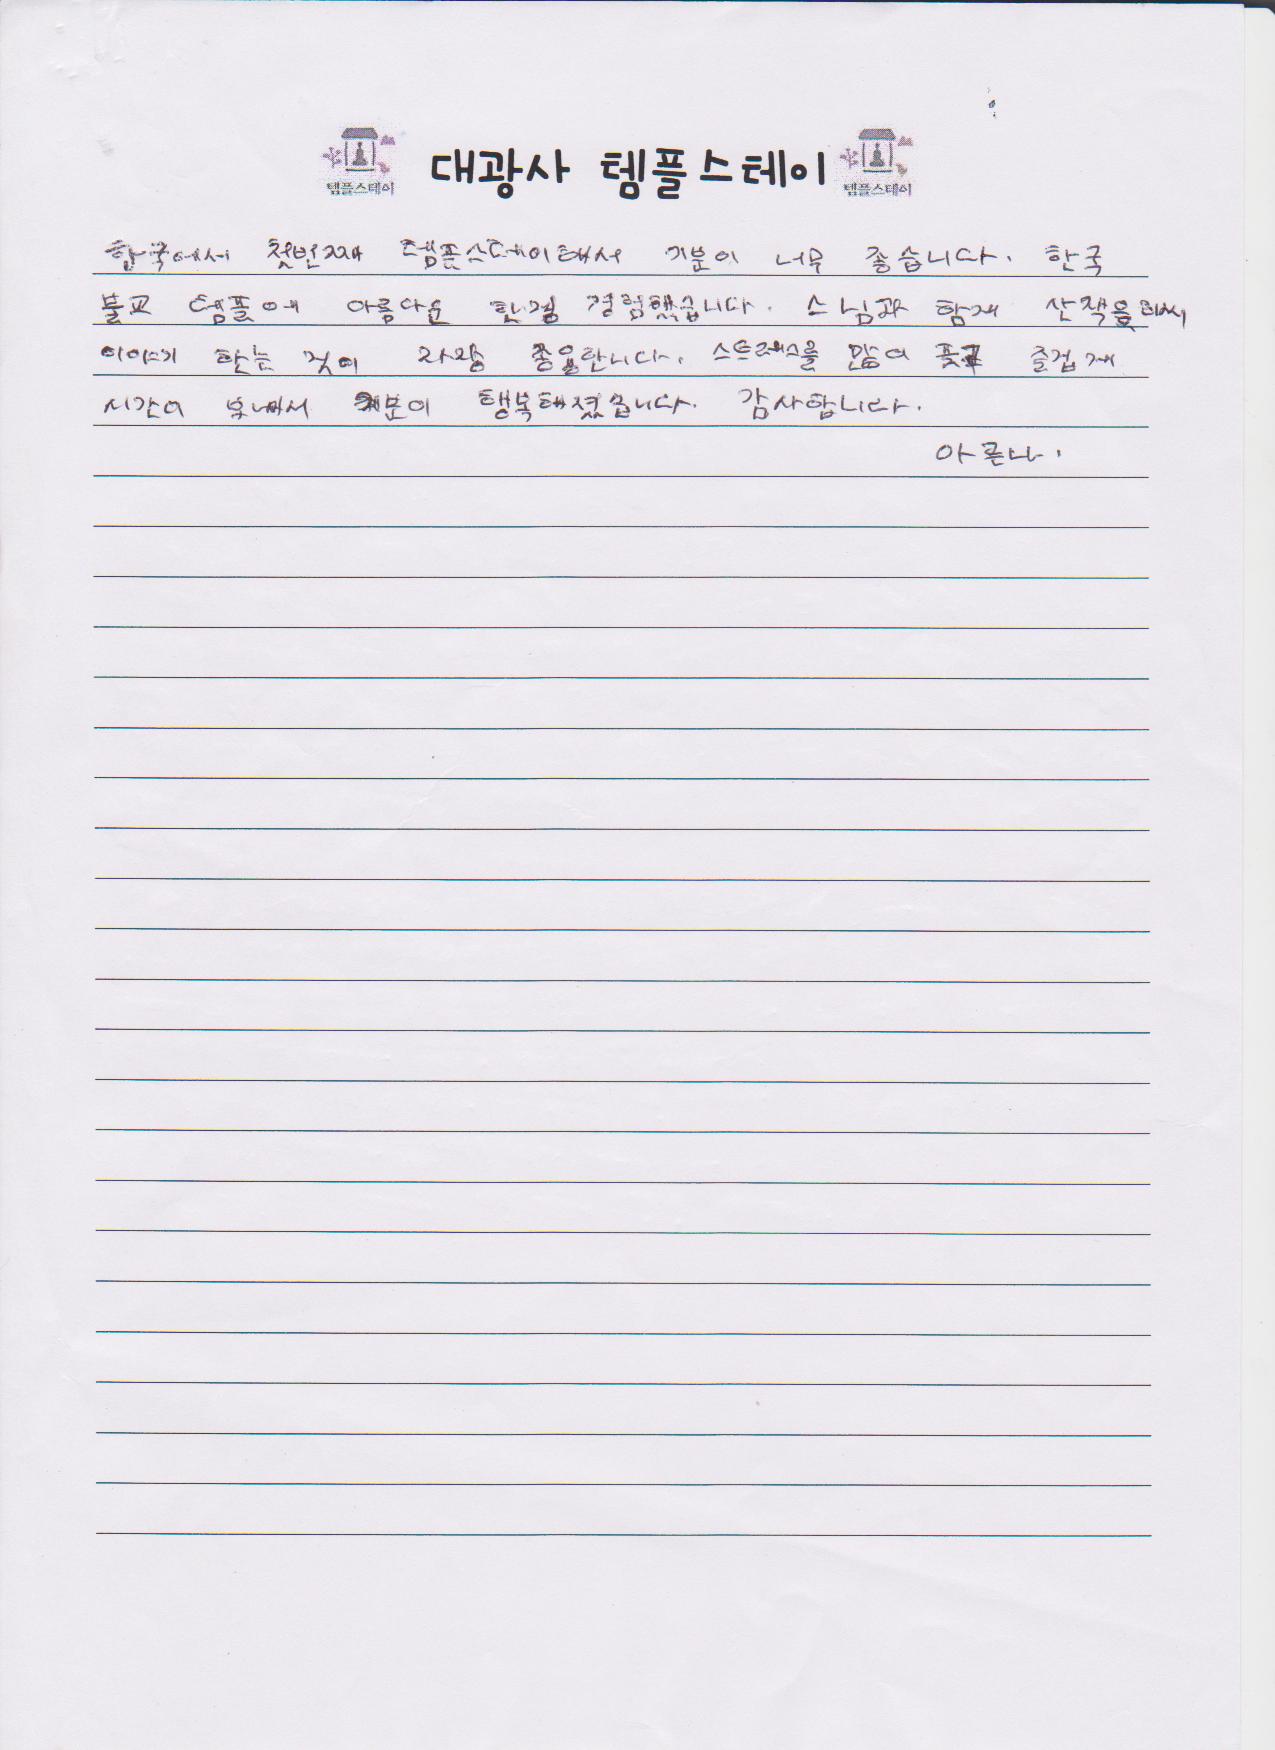 템플스테이 대광사 템플스테이 템플스테이
한국에서 첫번째 템플스테이해서 기분이 너무 좋습니다. 한국
불교 템플에 아름다운 한경 경험했습니다. 스님과 함께 산책을
이야기 하는 것이 스트레스를 많이 즐겁게
시간이 보내서 기분이 행복해졌습니다. 감사합니다.
아른다.